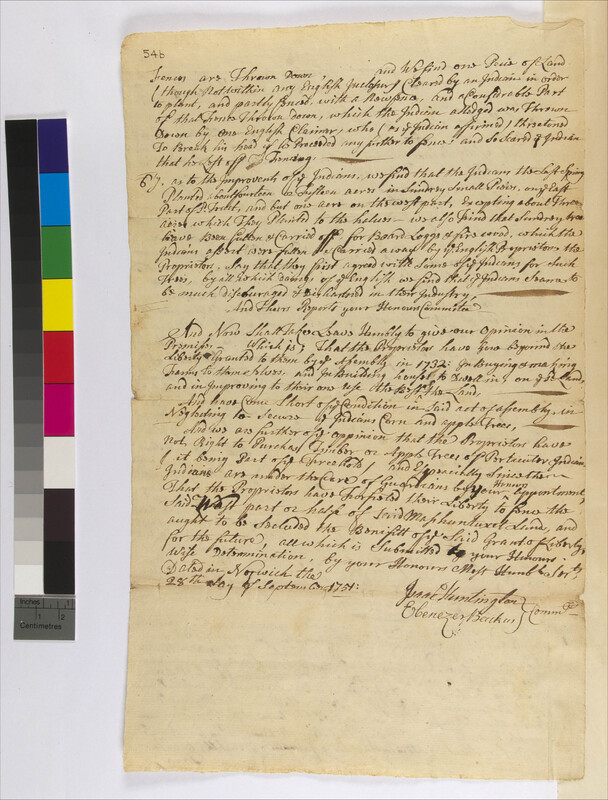 54b
Fences are Thrown Down, and We find one Peice of Land
(though Not within any English Inclosure) Cleared by an Indian in order
to plant, and partly fenced, with a Hewfence, and a Considerable Part
of that fence Thrown down, which the Indian alledged was Thrown
Down by one English Claimer, who (as ye Indian affirmed) threatned
To Break his head if he Proceeded any further to fence, and so Scared ye Indian
that he Left off Fencing;
6ly. as to the Improvemts of ye Indians, we find that the Indians the Last Spring
Planted about fourteen or Fifteen acres in Sundry Small Peices, on ye East
Part of sd. Tract, and but one acre on the west part, Excepting about Three
acres which They Planted to the halves — we also find that Sundry trees
have Been Cutten & Carried off for Board Loggs & fire wood, which the
Indians assert were Cutten & Carried away by ye English Proprietors the
Proprietors, Say that they first agreed with Some of ye Indians for Such
Trees, by all which Doings of ye English we find that ye Indians Seem to
be much Discouraged & Disheartened in their Industry,
And Thus Reports your Honours Committee
And Now Shall take Leave Humbly to give our Opinion in the
Premises. Which is; That the Proprietors have gone Beyond the
Liberty Granted to them by ye Assembly in 1732; In buying & making
Farms to themselves, and In building houses to Dwell in, on ye sd Land,
and in Improving to their own Use the Best of the Land,
And have Come Short of ye Condition in Said act of assembly in
Neglecting to Secure ye Indians Corn and apple Trees,
And we are further of ye oppinion that the Proprietors have
Not Right to Purchas Timber or Apple Trees of Perticuler Indians
(it being Part of ye Freehold) and Especially Since the
Indians are under the Care of Guardians by your Honours Appointment,
That the Proprietors have forfeited their Liberty to fence the
Said West part or halfe of Said Mashuntuxet Land, and
aught to be Secluded the Benifitt of ye Said Grant of Liberty
for the future, all which is Submitted to your Honours
Wise Determination, by your Honours Most Humble Servts,
Dated in Norwich the
28th Day of September 1751:
Isaac Huntington
Ebenezer Backus
Committee
Inches
1
2
Centimetres